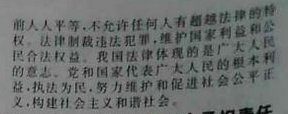 前人人平等,不允许任何人有超越法律的特
权。法律制裁违法犯罪,维护国家利益和公
民合法权益。我国法律体现的是广大人民
的意志。党和国家代表广大人民的根本利
益,执法为民,努力维护和促进社会公平正
义,构建社会主义和谐社会。
担责任